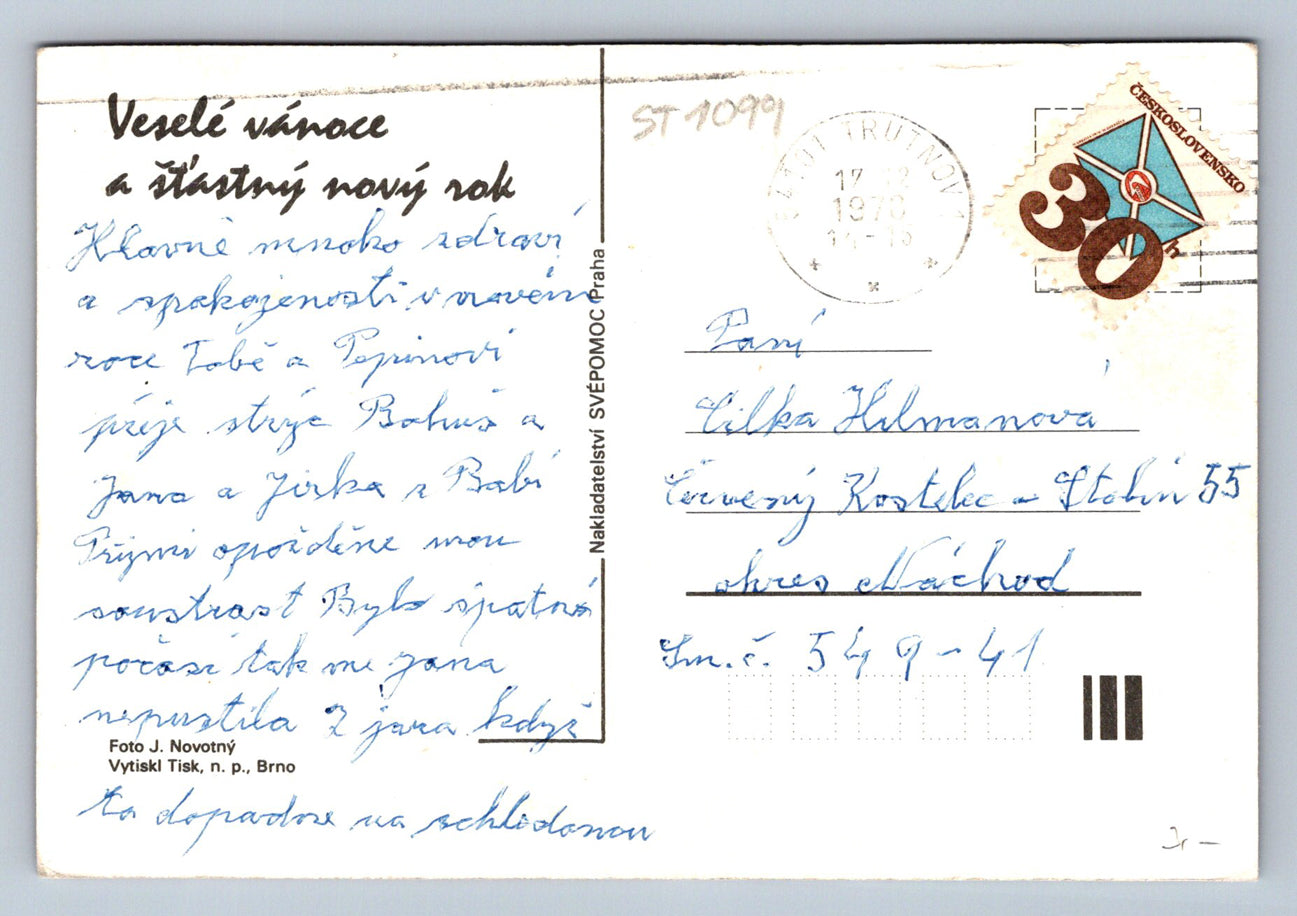 Veselé vánoce
a šťastný nový rok
Hlavně mnoho zdraví
a spokojenosti v novém
roce Tobě a Pepinovi
přeje strýc Bohuš a
Jana a Jirka z Babí
Přijmi opožděně mou
soustrast Bylo špatné
počasí tak me Jana
nepustila Z jara když
to dopadne na schledanou
Foto J. Novotný
Vytiskl Tisk, n. p., Brno
Nakladatelství SVÉPOMOC Praha
ST 1099
541 01 TRUTNOV 1
17.12
1978
14-15
ČESKOSLOVENSKO
30 h
Paní
Cilka Hilmanová
Červený Kostelec - Stolín 55
okres Náchod
Sm.č. 549-41